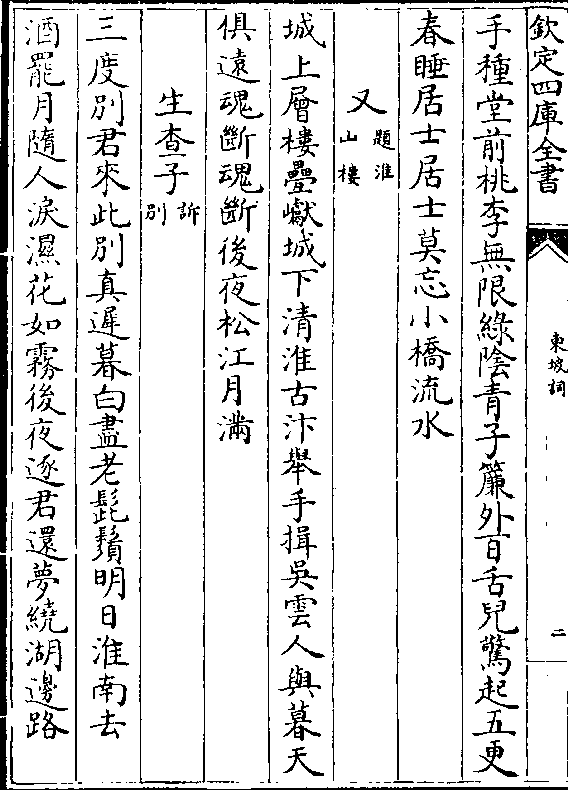 欽定四庫全書
東坡詞
二
手種堂前桃李無限綠陰青子簾外百舌兒驚起五更
春睡居士居士莫忘小橋流水
又題淮山樓
城上層樓疊巘城下清淮古汴舉手揖吳雲人與暮天
俱遠魂斷魂斷後夜松江月滿
生查子訴別
三度別君來此別真遲暮白盡老髭鬚明日淮南去
酒罷月隨人淚濕花如霧後夜逐君還夢繞湖邊路